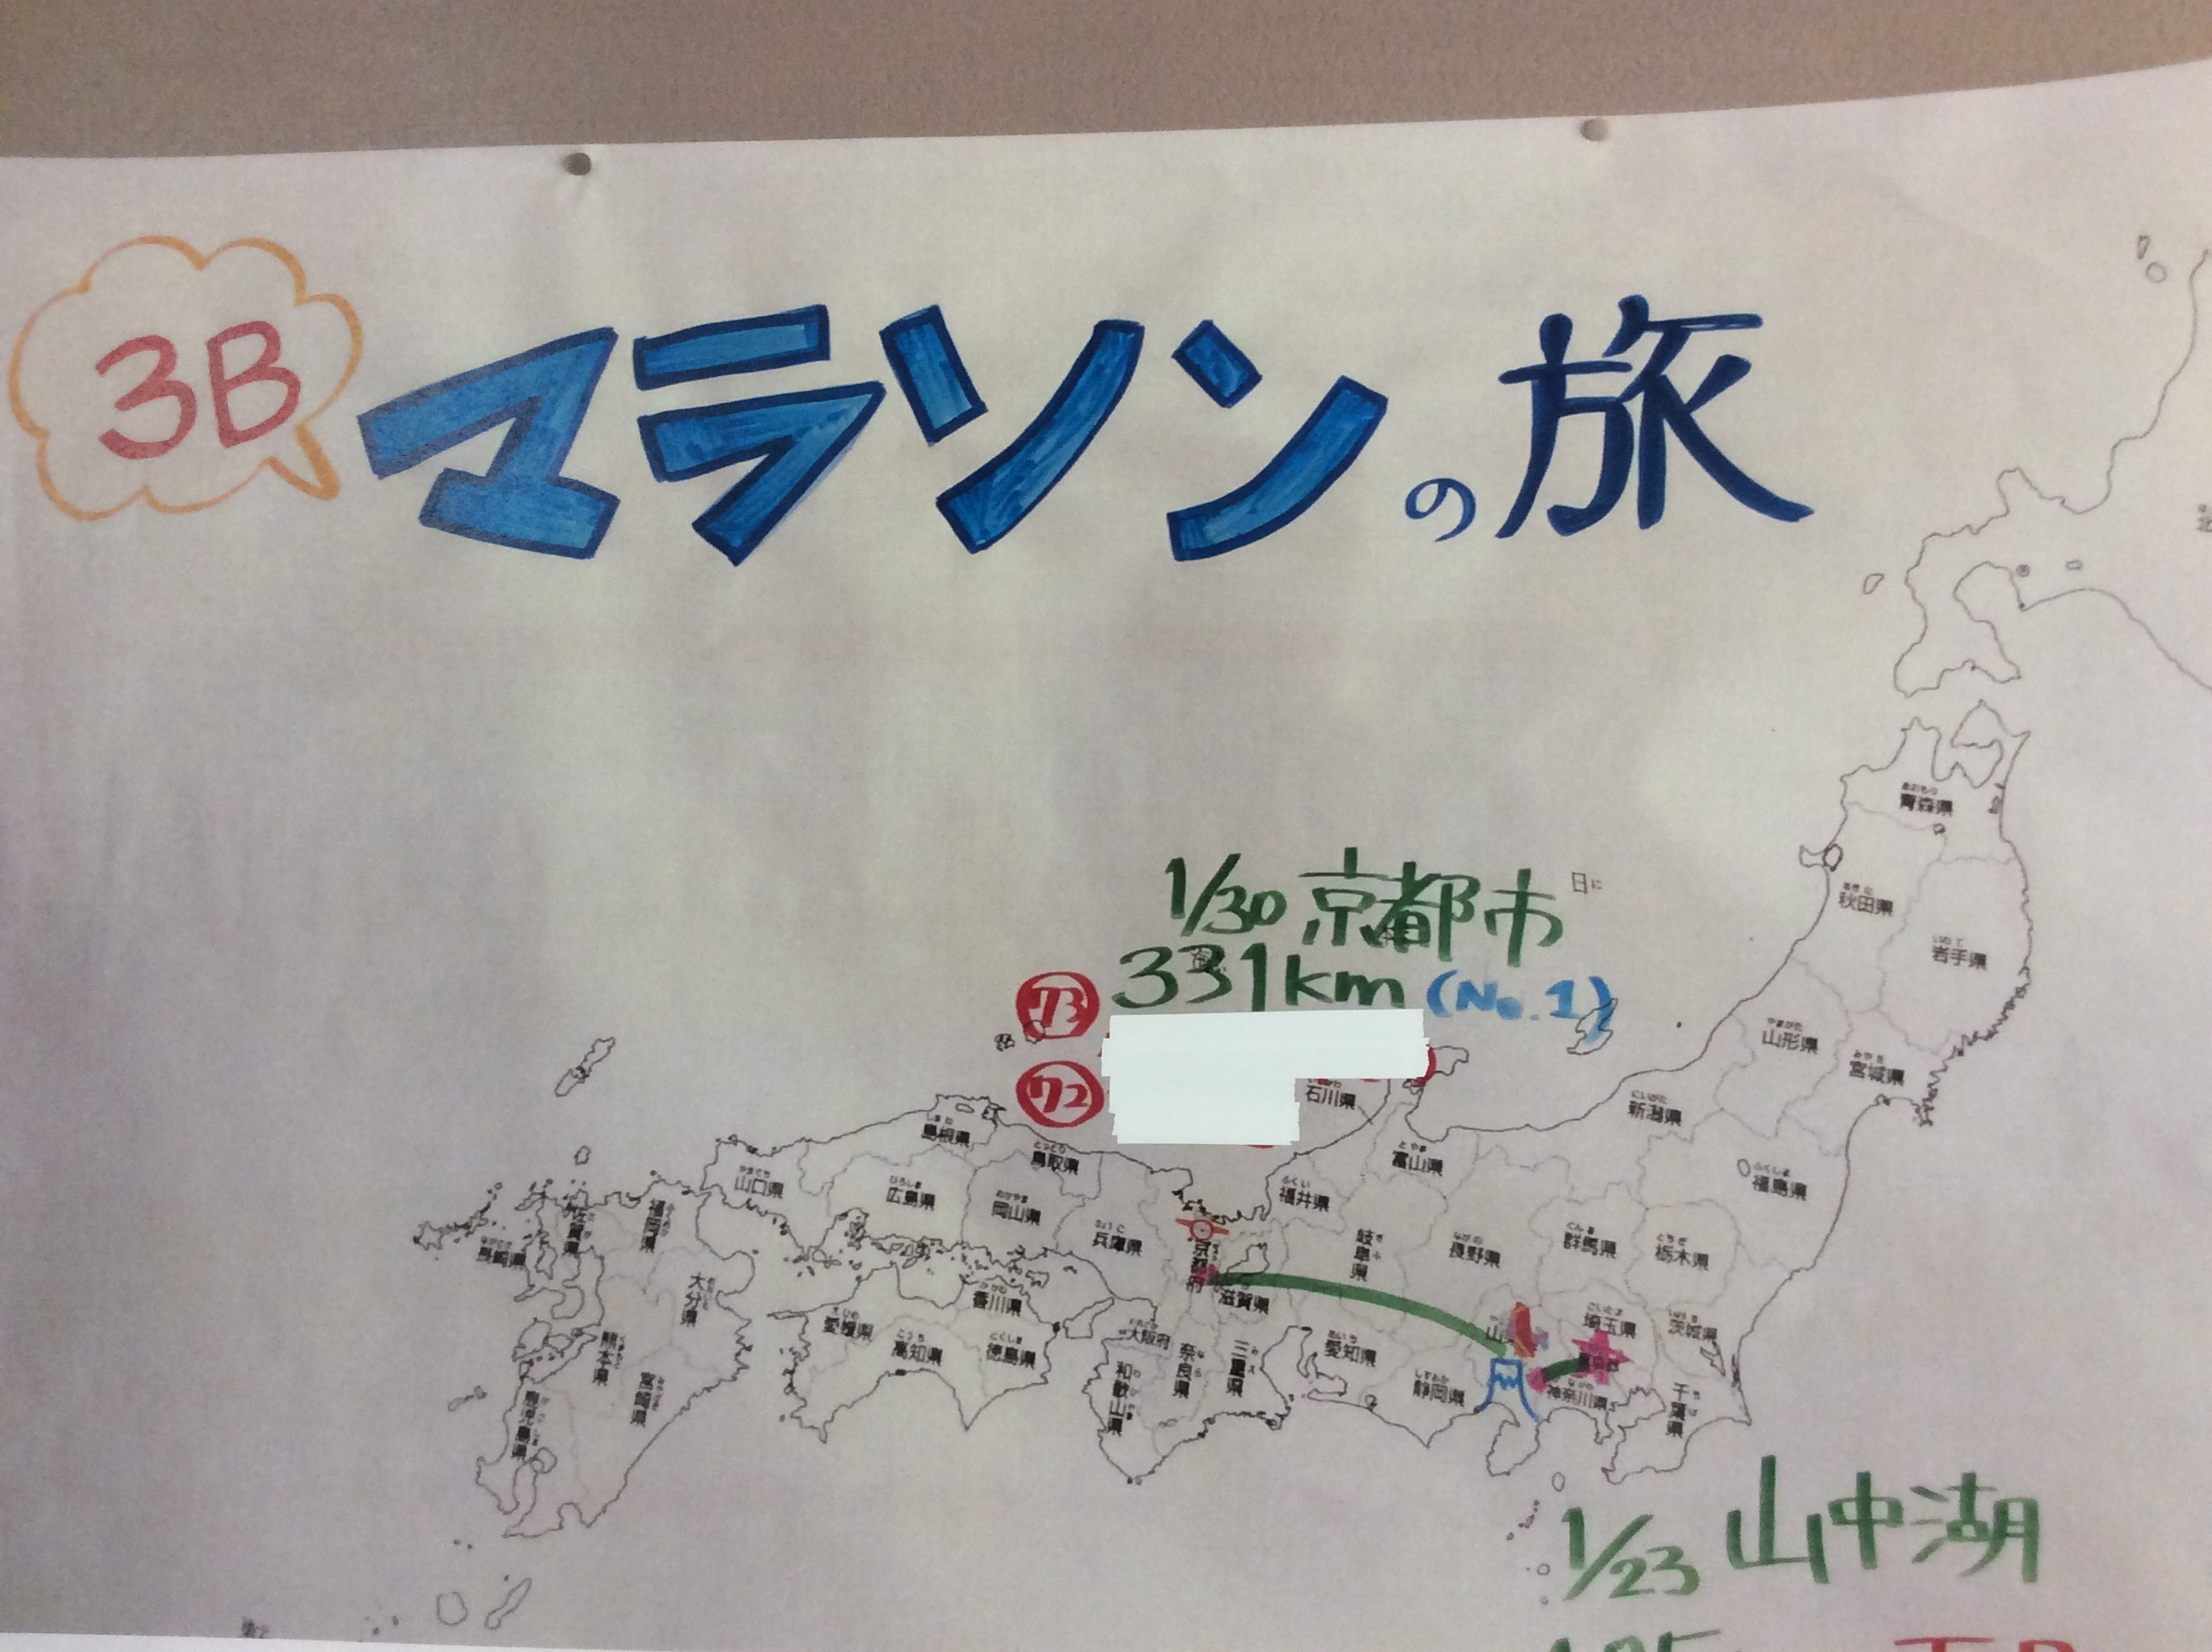 3B マラソンの旅
1/30 京都市
331km (No.1)
青森県
秋田県
岩手県
山形県
宮城県
新潟県
福島県
石川県
富山県
福井県
岐阜県
長野県
群馬県
栃木県
埼玉県
茨城県
神奈川県
千葉県
静岡県
愛知県
滋賀県
三重県
奈良県
和歌山県
大阪府
兵庫県
鳥取県
岡山県
島根県
広島県
山口県
香川県
徳島県
高知県
愛媛県
福岡県
佐賀県
長崎県
大分県
熊本県
宮崎県
鹿児島県
1/23 山中湖